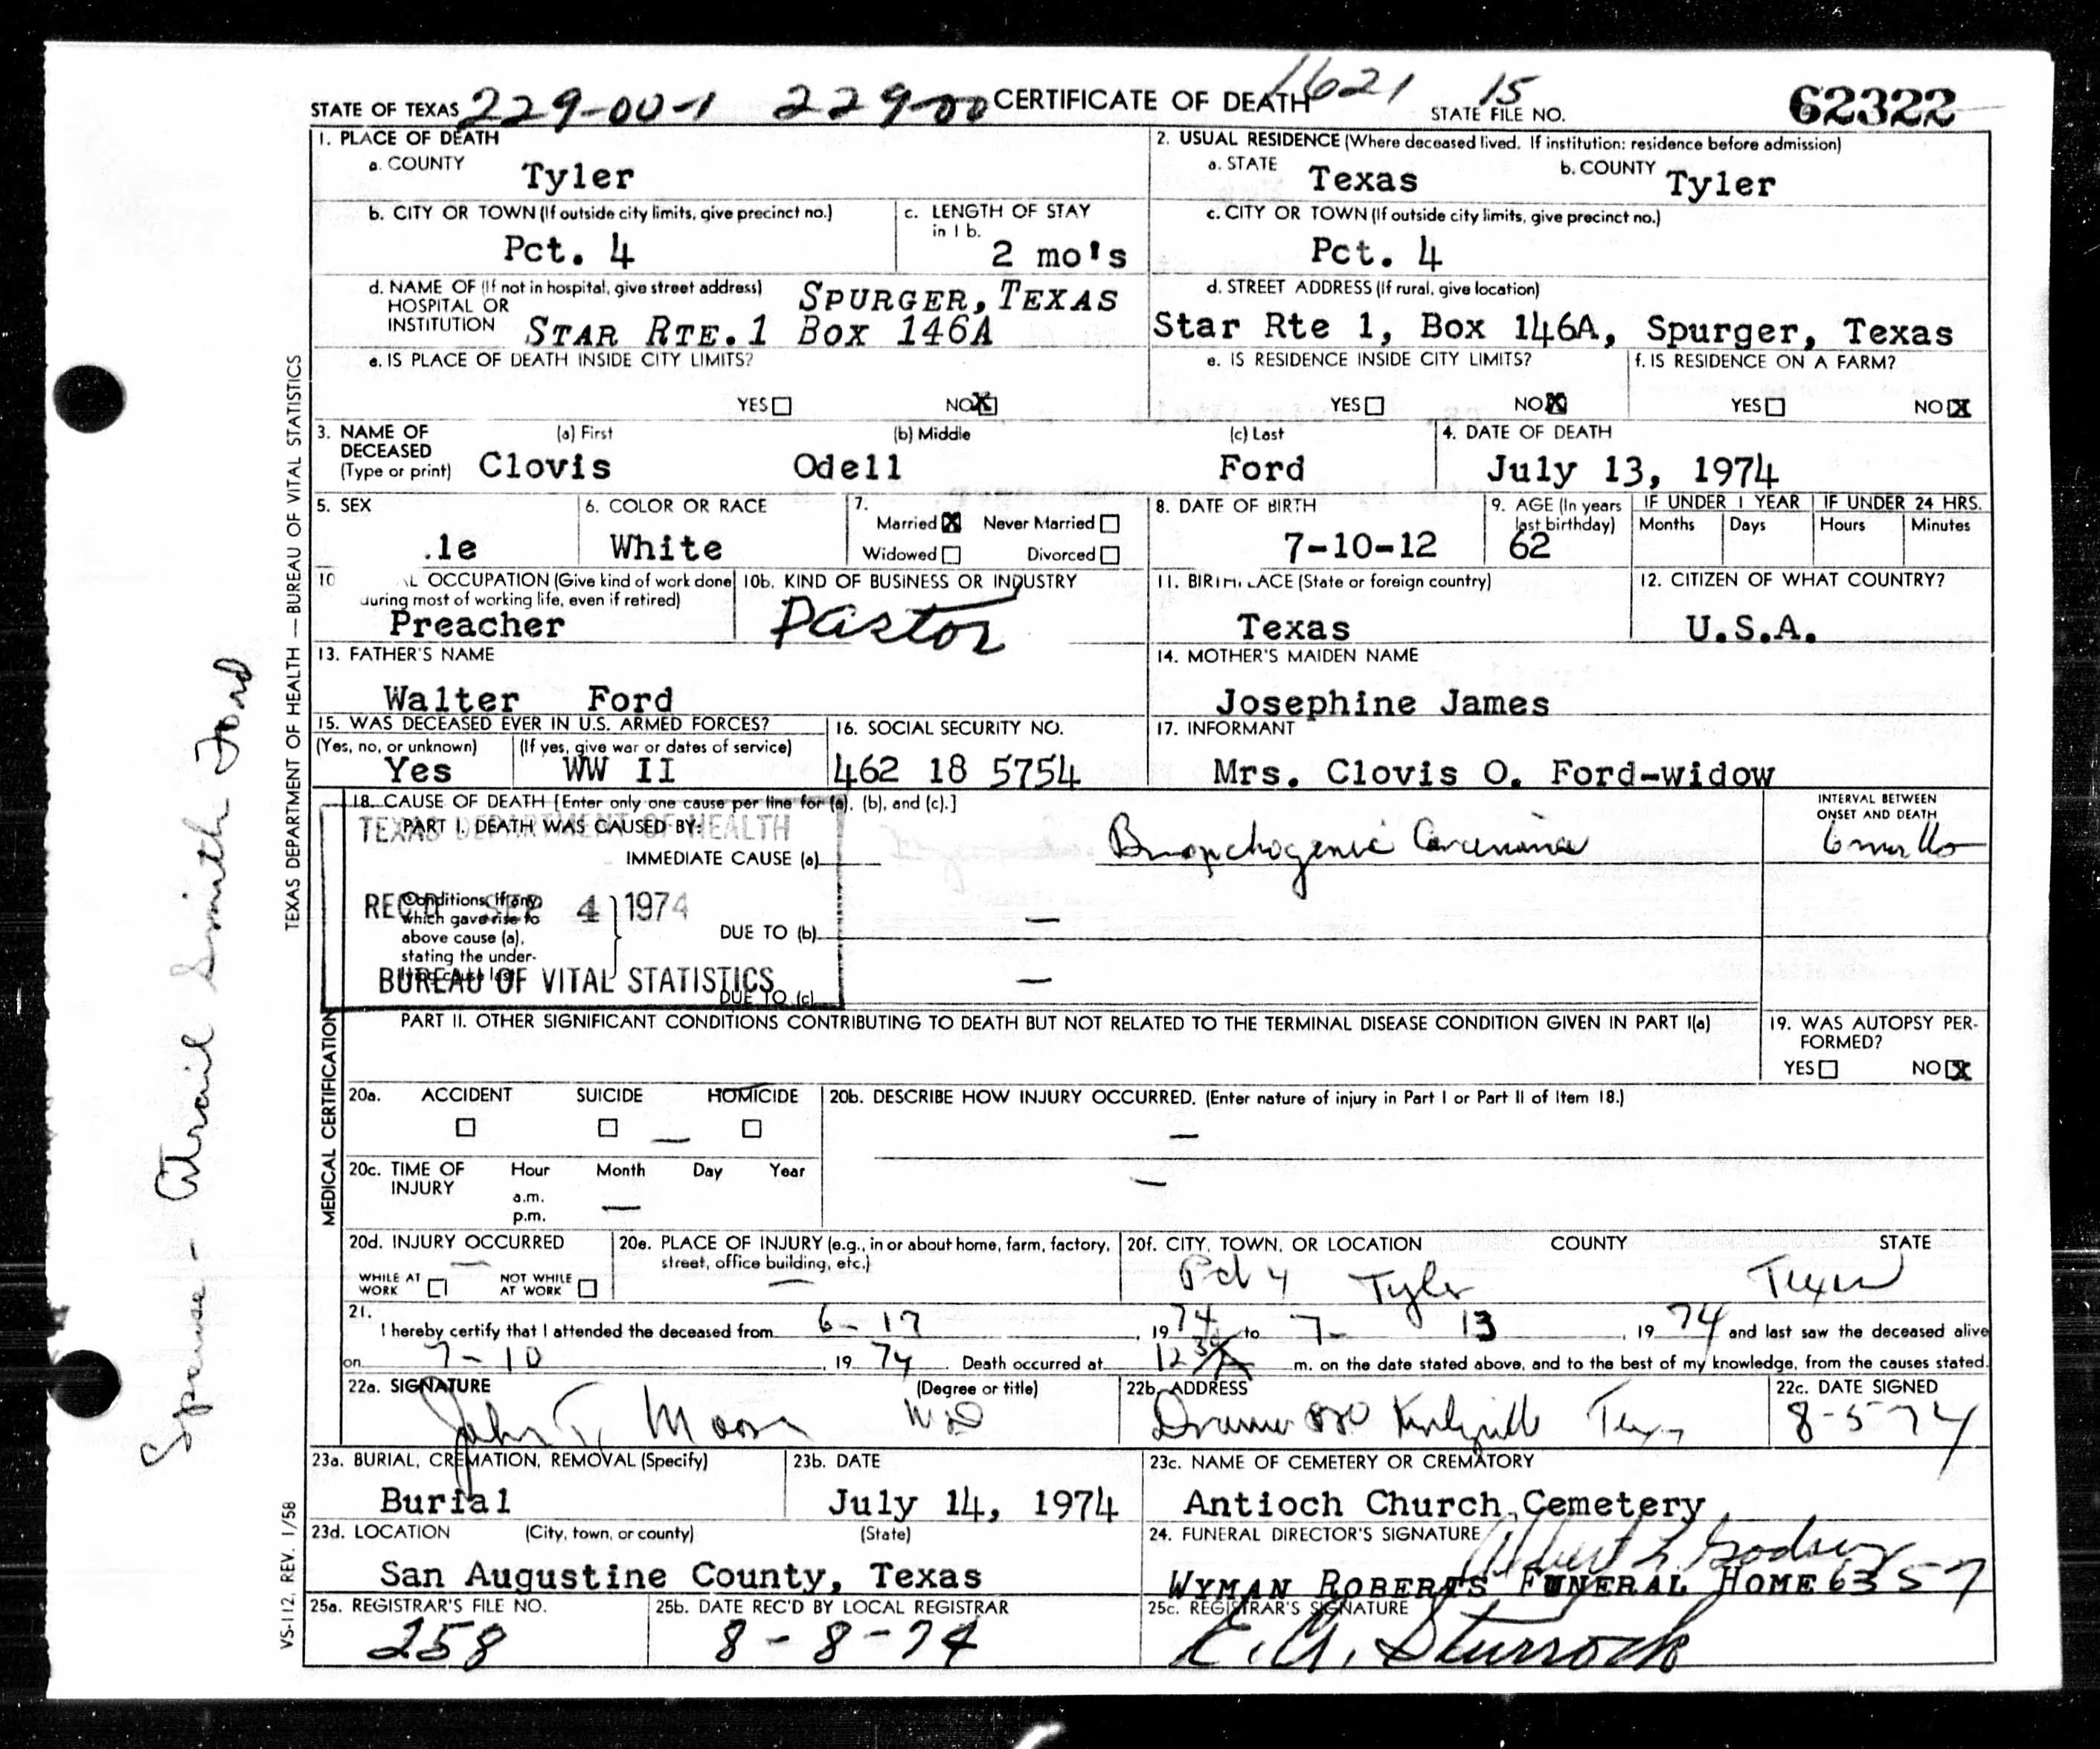 STATE OF TEXAS 229-00-1 229-00 CERTIFICATE OF DEATH 1621 15 STATE FILE NO. 62322
1. PLACE OF DEATH
a. COUNTY Tyler
2. USUAL RESIDENCE (Where deceased lived. If institution: residence before admission)
a. STATE Texas b. COUNTY Tyler
b. CITY OR TOWN (If outside city limits, give precinct no.) Pct. 4
c. LENGTH OF STAY in 1 b. 2 mo's
c. CITY OR TOWN (If outside city limits, give precinct no.) Pct. 4
d. NAME OF (If not in hospital, give street address) SPURGER, TEXAS
HOSPITAL OR
INSTITUTION STAR RTE. 1 BOX 146A
d. STREET ADDRESS (If rural, give location)
Star Rte 1, Box 146A, Spurger, Texas
e. IS PLACE OF DEATH INSIDE CITY LIMITS?
YES NO X
e. IS RESIDENCE INSIDE CITY LIMITS?
YES NO X
f. IS RESIDENCE ON A FARM?
YES NO X
3. NAME OF DECEASED (Type or print)
(a) First (b) Middle (c) Last
Clovis Odell Ford
4. DATE OF DEATH
July 13, 1974
5. SEX
.le
6. COLOR OR RACE
White
7. Married X Never Married
Widowed Divorced
8. DATE OF BIRTH
7-10-12
9. AGE (In years last birthday)
62
IF UNDER 1 YEAR IF UNDER 24 HRS.
Months Days Hours Minutes
10 L OCCUPATION (Give kind of work done
during most of working life, even if retired)
Preacher
10b. KIND OF BUSINESS OR INDUSTRY
Pastor
11. BIRTHPLACE (State or foreign country)
Texas
12. CITIZEN OF WHAT COUNTRY?
U.S.A.
13. FATHER'S NAME
Walter Ford
14. MOTHER'S MAIDEN NAME
Josephine James
15. WAS DECEASED EVER IN U.S. ARMED FORCES?
(Yes, no, or unknown) (If yes, give war or dates of service)
Yes WW II
16. SOCIAL SECURITY NO.
462 18 5754
17. INFORMANT
Mrs. Clovis O. Ford-widow
18. CAUSE OF DEATH [Enter only one cause per line for (a), (b), and (c).]
PART I. DEATH WAS CAUSED BY:
TEXAS DEPARTMENT OF HEALTH
IMMEDIATE CAUSE (a) Bronchogenic Carcinoma
INTERVAL BETWEEN
ONSET AND DEATH
Conditions, if any,
which gave rise to
above cause (a),
stating the under-
lying cause last.
REC'D SEP 4 1974
DUE TO (b) —
BUREAU OF VITAL STATISTICS
DUE TO (c) —
PART II. OTHER SIGNIFICANT CONDITIONS CONTRIBUTING TO DEATH BUT NOT RELATED TO THE TERMINAL DISEASE CONDITION GIVEN IN PART I(a)
19. WAS AUTOPSY PER-
FORMED?
YES NO X
20a. ACCIDENT SUICIDE HOMICIDE
—
20b. DESCRIBE HOW INJURY OCCURRED. (Enter nature of injury in Part I or Part II of Item 18.)
—
—
20c. TIME OF INJURY
Hour Month Day Year
a.m.
p.m. —
20d. INJURY OCCURRED
—
WHILE AT WORK NOT WHILE AT WORK
20e. PLACE OF INJURY (e.g., in or about home, farm, factory,
street, office building, etc.)
—
20f. CITY, TOWN, OR LOCATION COUNTY STATE
Pct 4 Tyler Texas
21.
I hereby certify that I attended the deceased from 6-17, 1974 to 7- 13, 1974 and last saw the deceased alive
on 7-10, 1974. Death occurred at 12 30 A m. on the date stated above, and to the best of my knowledge, from the causes stated.
22a. SIGNATURE (Degree or title)
John T. Moore MD
22b. ADDRESS
Drawer 880 Kirbyville Tex
22c. DATE SIGNED
8-5-74
23a. BURIAL, CREMATION, REMOVAL (Specify)
Burial
23b. DATE
July 14, 1974
23c. NAME OF CEMETERY OR CREMATORY
Antioch Church Cemetery
23d. LOCATION (City, town, or county) (State)
San Augustine County, Texas
24. FUNERAL DIRECTOR'S SIGNATURE
WYMAN ROBERTS FUNERAL HOME 6357
25a. REGISTRAR'S FILE NO.
258
25b. DATE REC'D BY LOCAL REGISTRAR
8-8-74
25c. REGISTRAR'S SIGNATURE
E. A. Sturrock
TEXAS DEPARTMENT OF HEALTH — BUREAU OF VITAL STATISTICS
MEDICAL CERTIFICATION
VS-112. REV. 1/58
Smith Ford